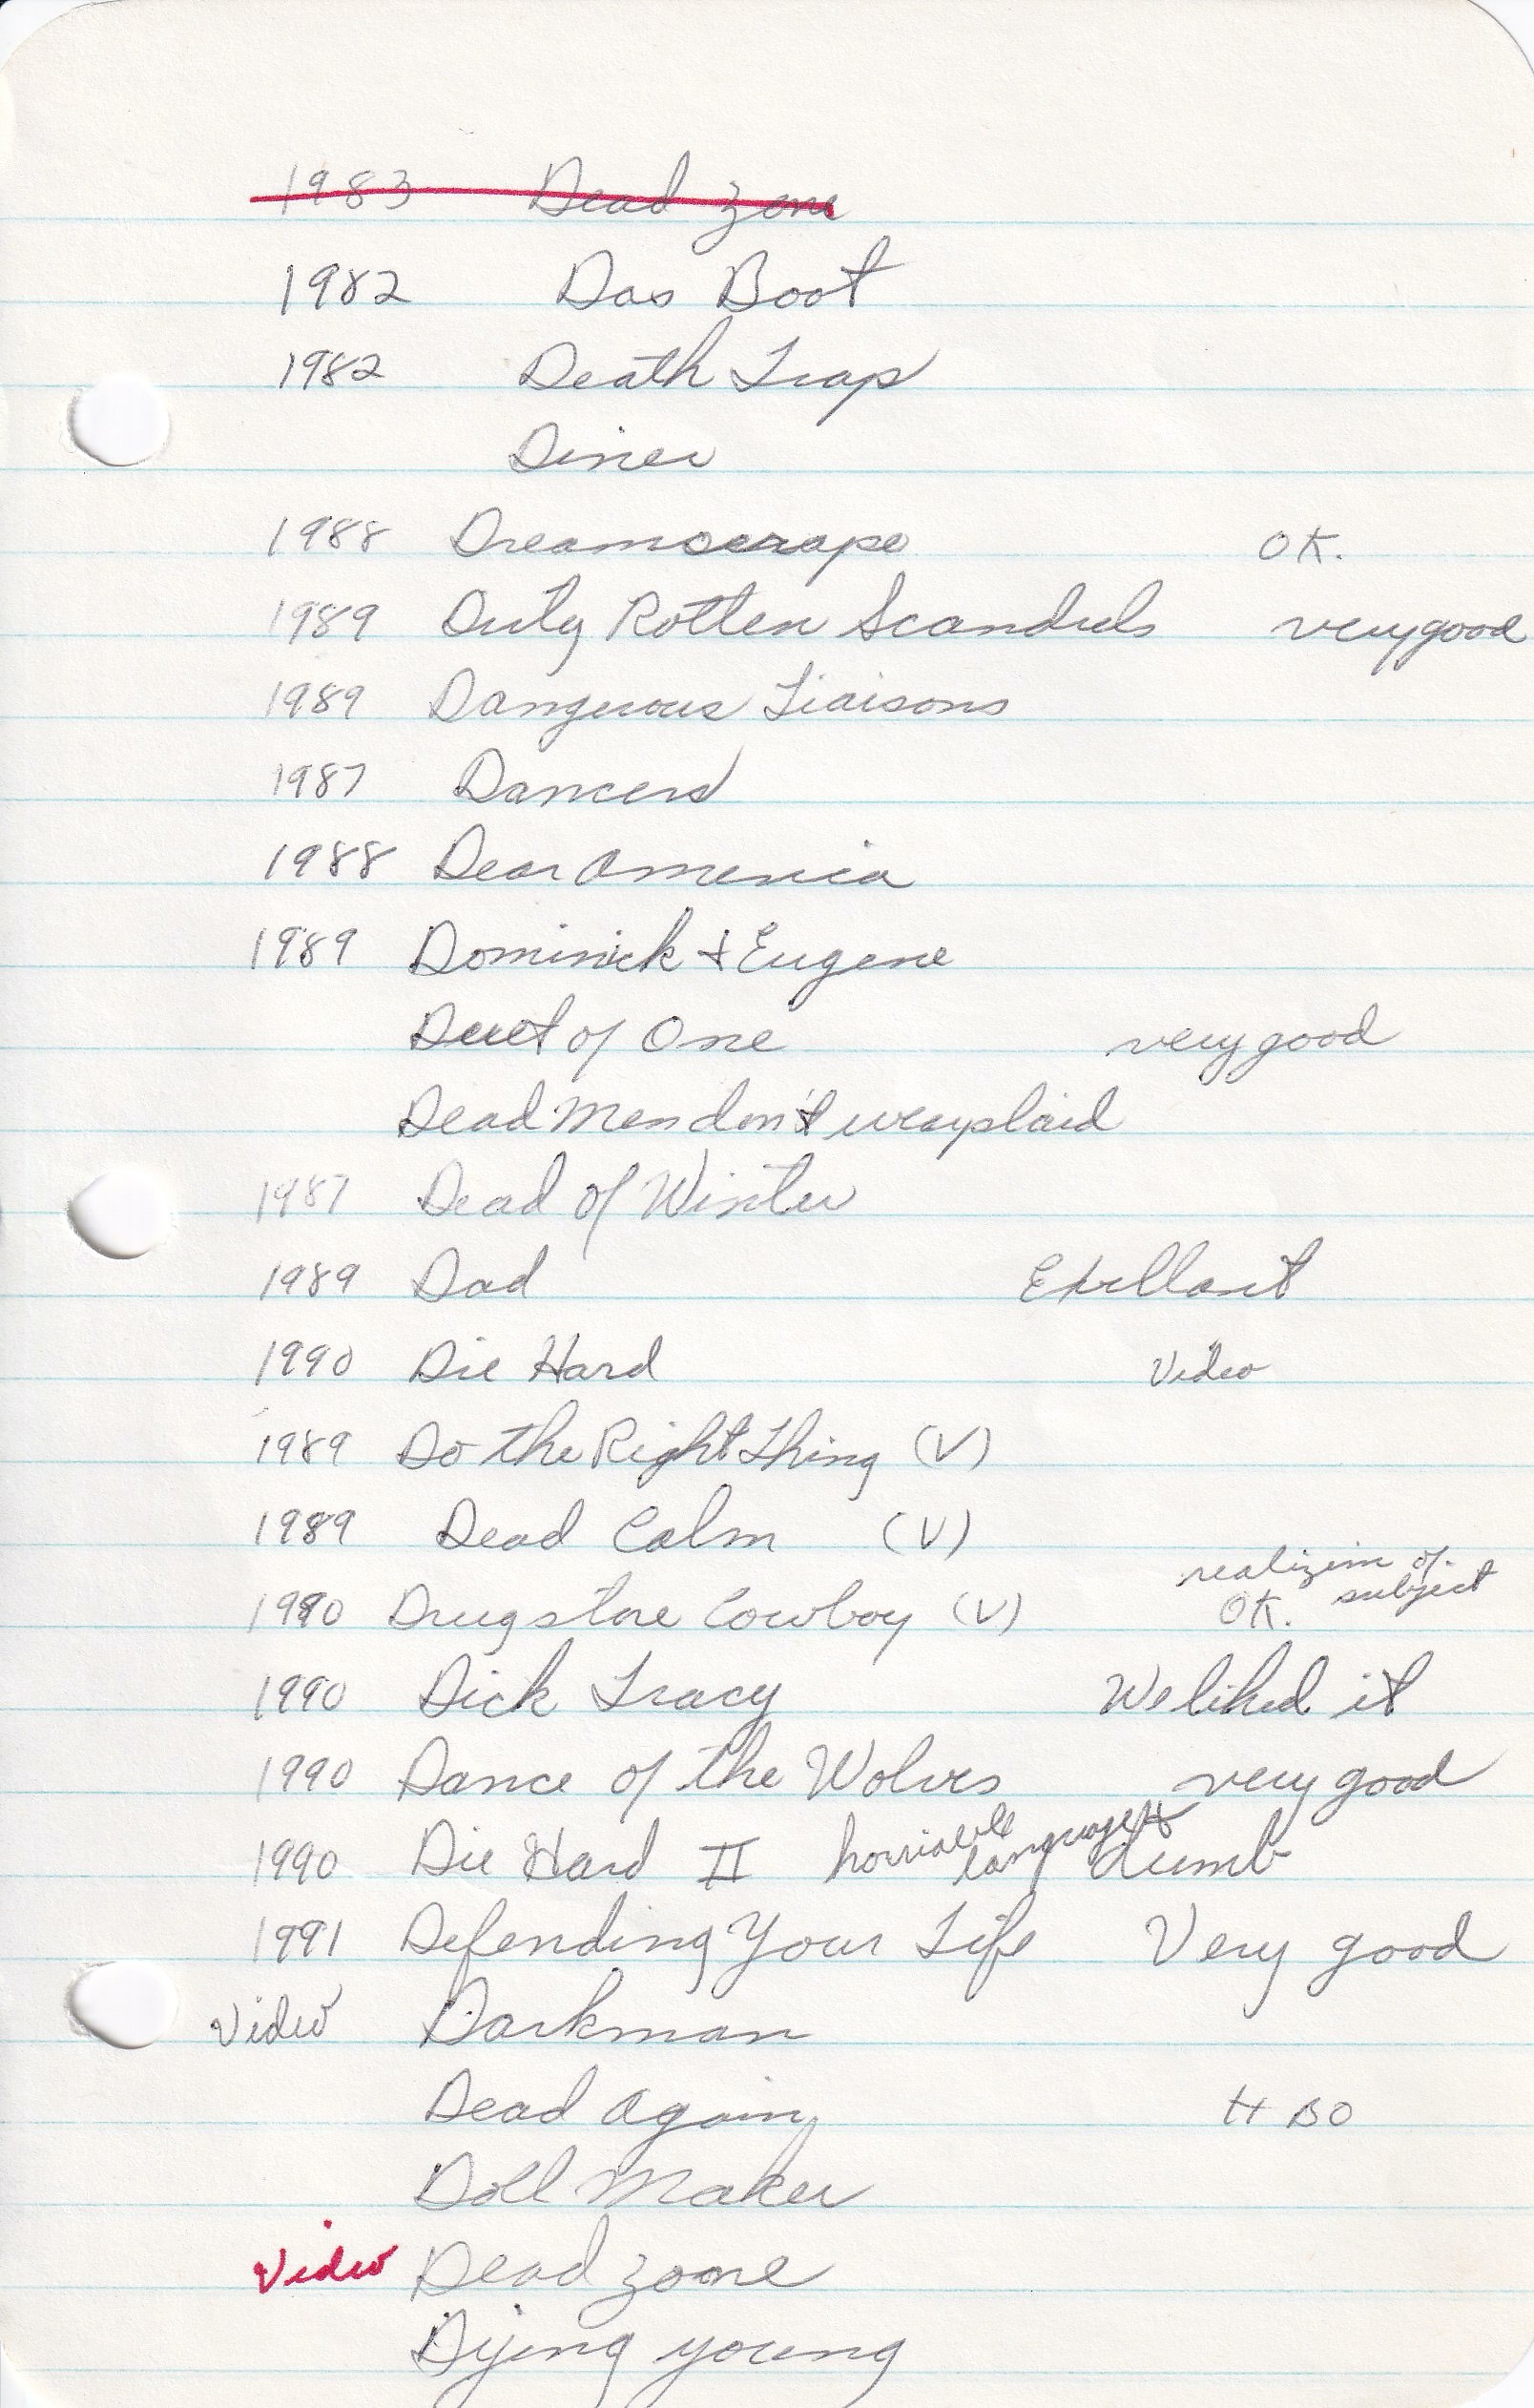 1983 Dead zone
1982 Das Boot
1982 Death Trap
Diner
1988 Dreamscrape OK.
1989 Dirty Rotten Scandrels very good
1989 Dangerous Liaisons
1987 Dancers
1988 Dear America
1989 Dominick + Eugene
Duet of One very good
Dead Men don't wear plaid
1987 Dead of Winter
1989 Dad Exellant
1990 Die Hard Video
1989 Do the Right Thing (V)
1989 Dead Calm (V)
realizim of subject
1990 Drugstore Cowboy (V) OK.
1990 Dick Tracy We liked it
1990 Dance of the Wolves very good
1990 Die Hard II language & dumb
1991 Defending Your Life Very good
Video Darkman
Dead Again HBO
Doll Maker
Video Dead zone
Dying young